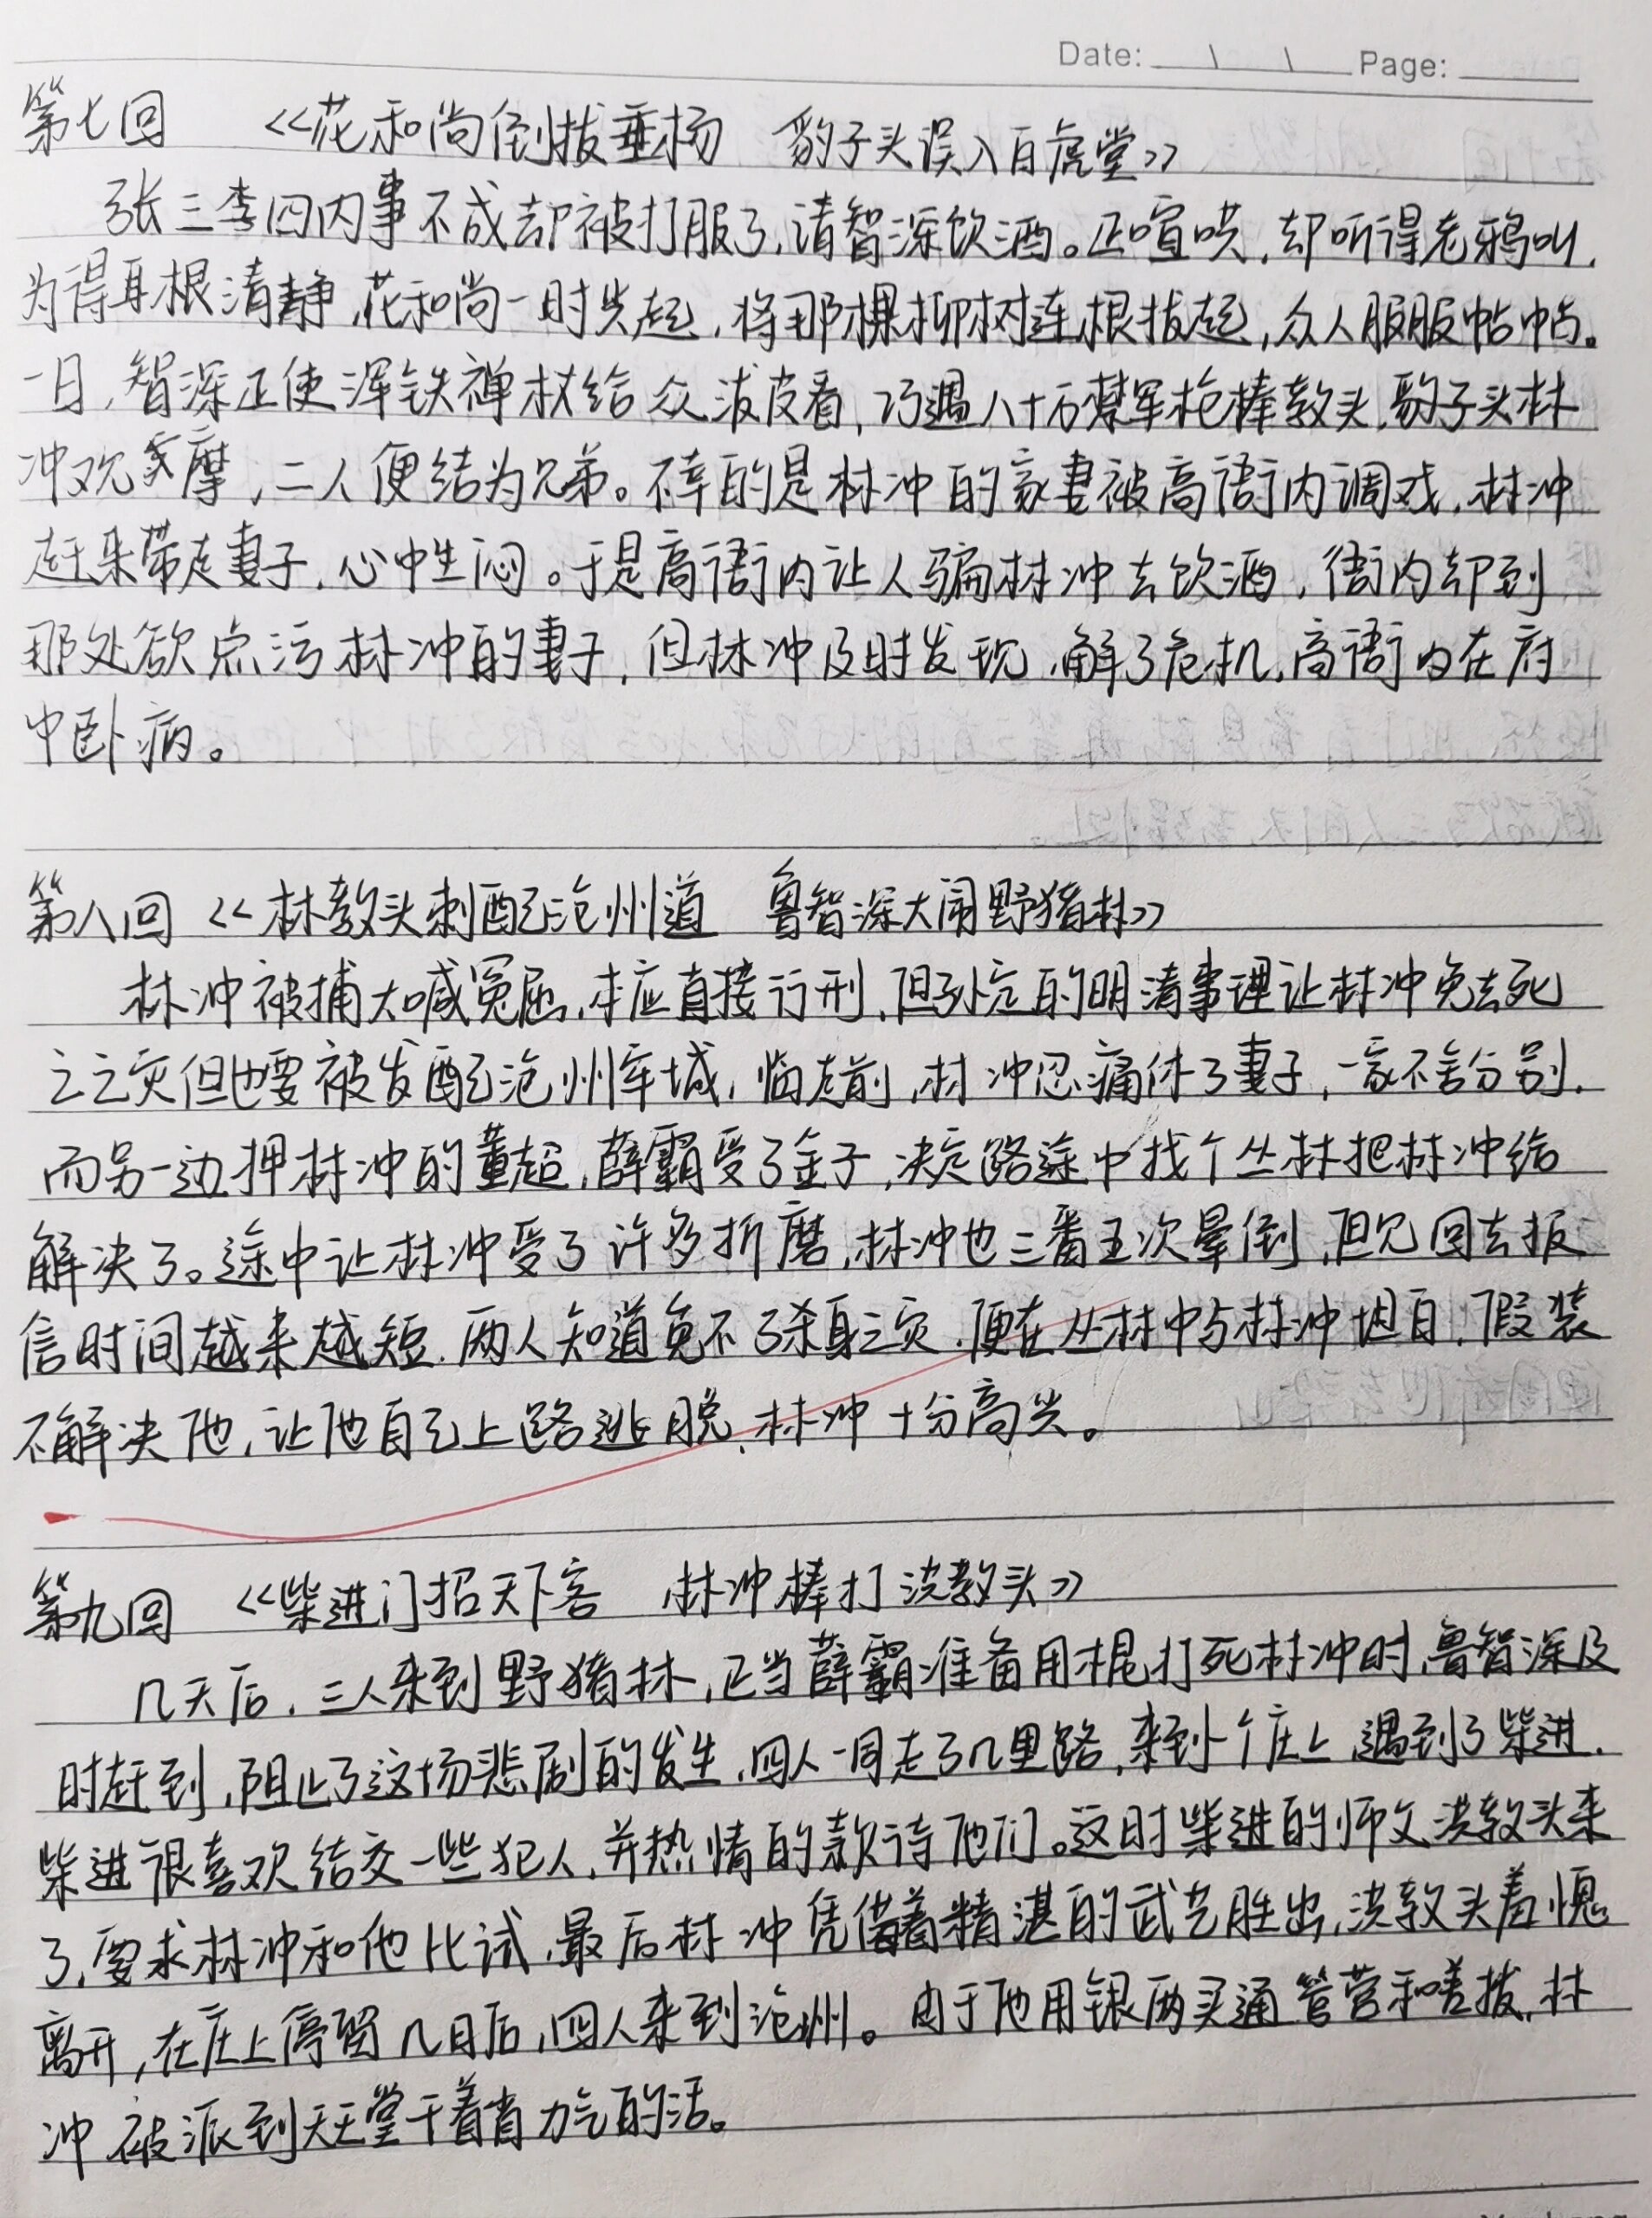 Date: \ \ Page:
第七回 《花和尚倒拔垂杨 豹子头误入白虎堂》
张三李四闪事不成却被打服了,请智深饮酒。正喧哄,却听得老鸦叫,
为得耳根清静,花和尚一时失起,将那棵柳树连根拔起,众人服服帖帖。
一日,智深正使浑铁禅杖给众泼皮看,巧遇八十万禁军枪棒教头,豹子头林
冲观摩,二人便结为兄弟。不幸的是林冲的家妻被高衙内调戏,林冲
赶来带走妻子,心中生闷。于是高衙内让人骗林冲去饮酒,衙内却到
那处欲点污林冲的妻子,但林冲及时发现,解了危机,高衙内在府
中卧病。
第八回 《林教头刺配沧州道 鲁智深大闹野猪林》
林冲被捕大喊冤屈,本应直接行刑,但孙定的明清事理让林冲免去死
之之灾但也要被发配沧州牢城,临走前,林冲忍痛休了妻子,一家不舍分别,
而另一边押林冲的董超,薛霸受了金子,决定路途中找个丛林把林冲给
解决了。途中让林冲受了许多折磨,林冲也三番五次晕倒,但见回去报
信时间越来越短,两人知道免不了杀身之灾,便在丛林中与林冲坦白,假装
不解决他,让他自己上路逃脱,林冲十分高兴。
第九回 《柴进门招天下客 林冲棒打洪教头》
几天后,三人来到野猪林,正当薛霸准备用棍打死林冲时,鲁智深及
时赶到,阻止了这场悲剧的发生,四人一同走了几里路,来到一个庄上,遇到了柴进,
柴进很喜欢结交一些犯人,并热情的款待他们。这时柴进的师父洪教头来
了,要求林冲和他比试,最后林冲凭借着精湛的武艺胜出,洪教头羞愧
离开,在庄上停留几日后,四人来到沧州。由于他用银两买通管营和差拨,林
冲被派到天王堂干着省力气的活。